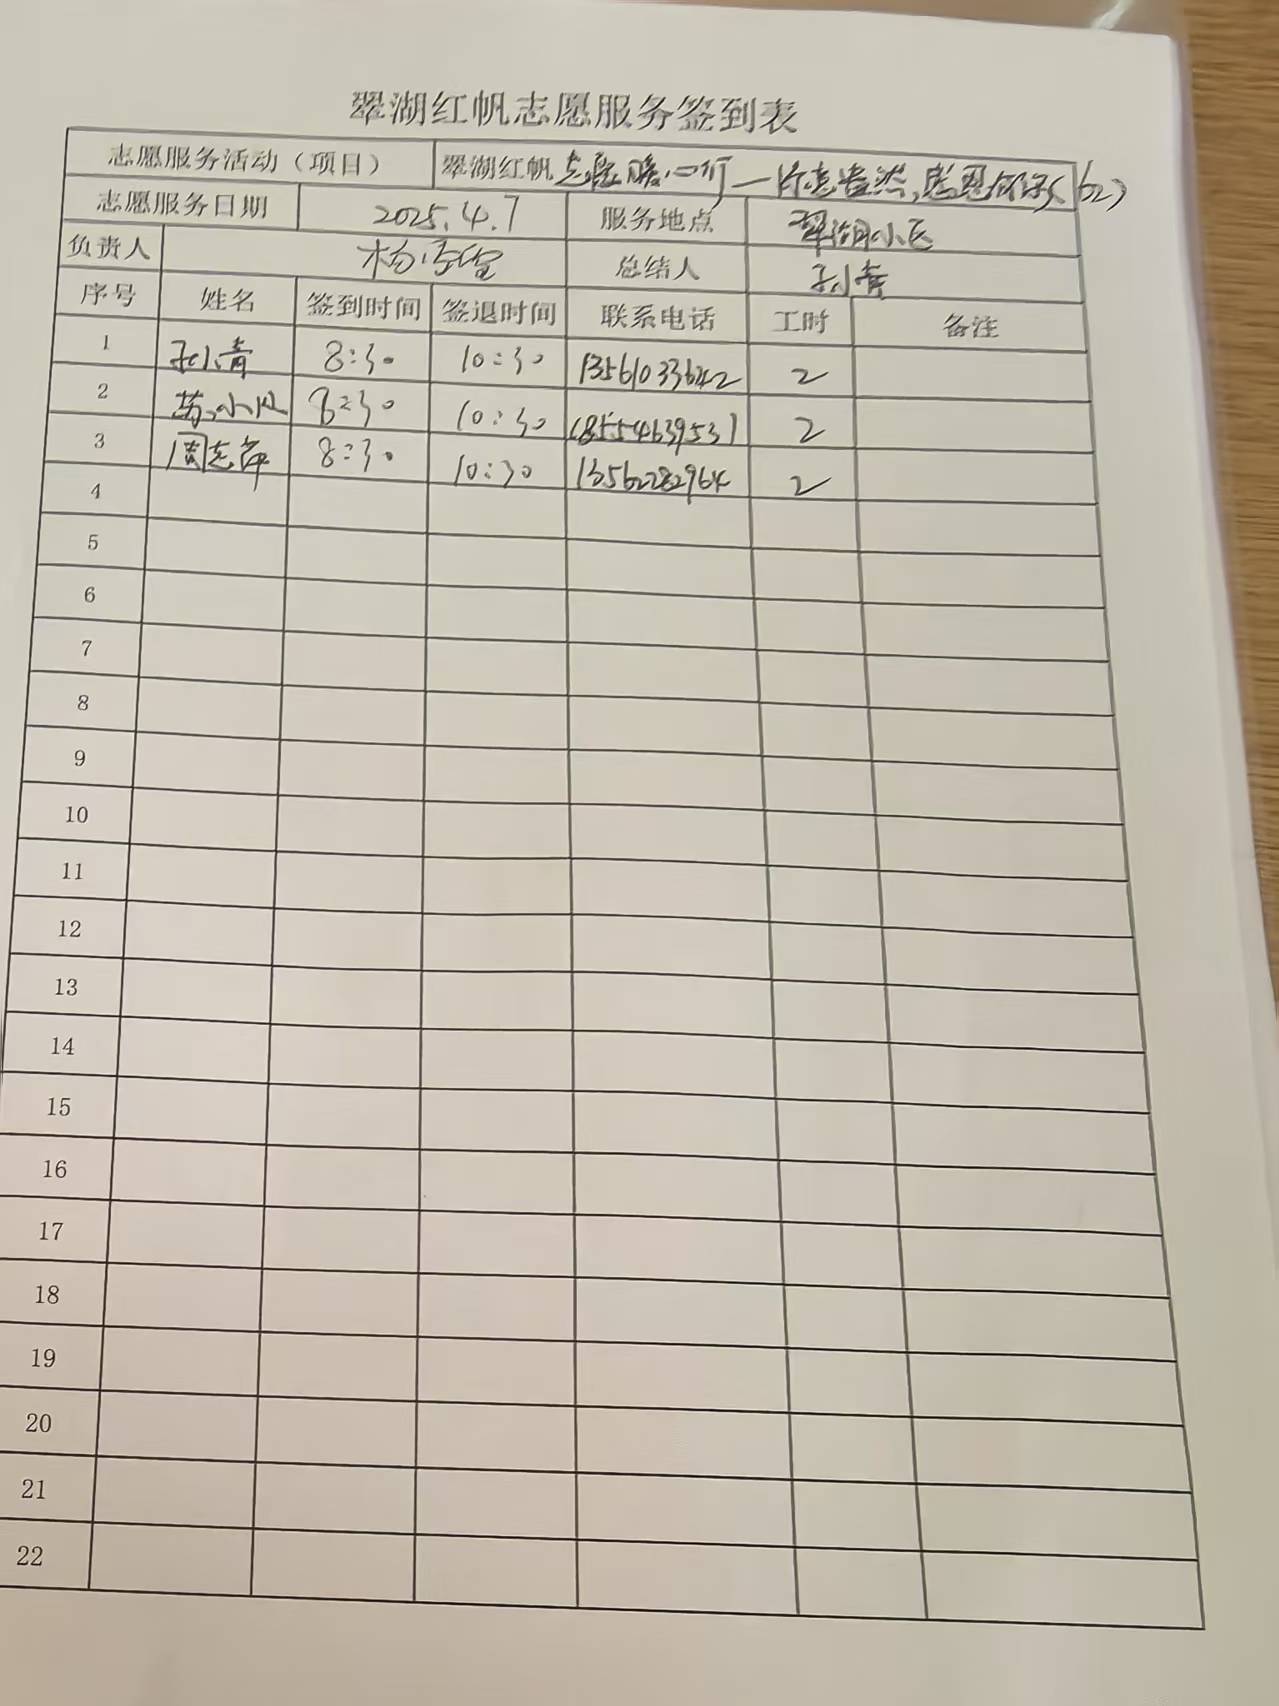 翠湖红帆志愿服务签到表
志愿服务活动（项目） 翠湖红帆志愿暖心行一
志愿服务日期 2025.4.7 服务地点 翠湖小区
负责人 杨 总结人 孙小青
序号 姓名 签到时间 签退时间 联系电话 工时 备注
1 孙小青 8:30 10:30 13561033642 2
2 苏小 8:30 10:30 18554639531 2
3 周志萍 8:30 10:30 13562282964 2
4
5
6
7
8
9
10
11
12
13
14
15
16
17
18
19
20
21
22